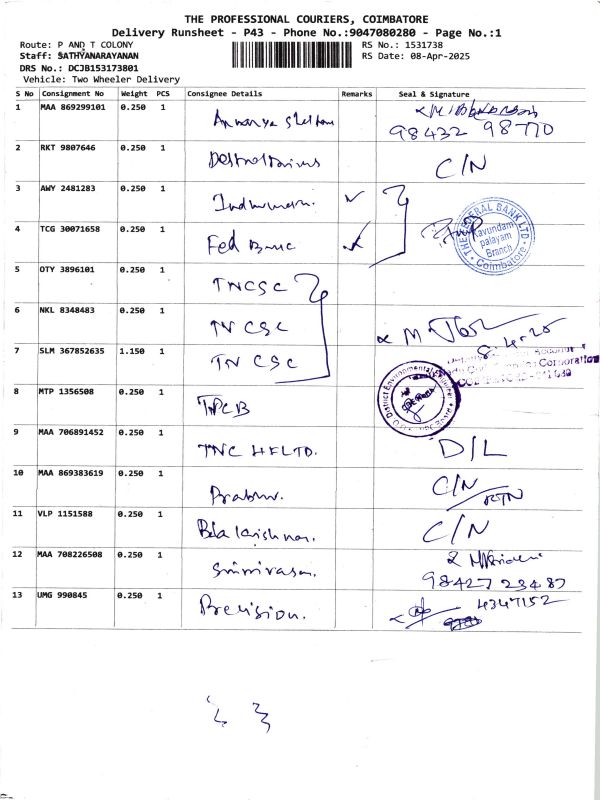 THE PROFESSIONAL COURIERS, COIMBATORE
Delivery Runsheet - P43 - Phone No.:9047080280 - Page No.:1
Route: P AND T COLONY
RS No.: 1531738
Staff: SATHYANARAYANAN
RS Date: 08-Apr-2025
DRS No.: DCJB153173801
Vehicle: Two Wheeler Delivery
S No Consignment No Weight PCS Consignee Details Remarks Seal & Signature
1 MAA 869299101 0.250 1
98432 98770
2 RKT 9807646 0.250 1 C/N
3 AWY 2481283 0.250 1
4 TCG 30071658 0.250 1 Fed Banc
THE FEDERAL BANK LTD
Kavundam
palayam
Branch
Coimbatore
5 OTY 3896101 0.250 1 TNCSC
6 NKL 8348483 0.250 1 TNCSC
8-4-25
7 SLM 367852635 1.150 1 TNCSC
Corporation
8 MTP 1356508 0.250 1 TPCB
District Environmental Engineer
9 MAA 706891452 0.250 1 TNC HFLTD. D/L
10 MAA 869383619 0.250 1 Prabhu. C/N
RTN
11 VLP 1151588 0.250 1 Balakrishnan. C/N
12 MAA 708226508 0.250 1 Srinivasan.
98427 23487
13 UMG 990845 0.250 1 Precision. 4347152